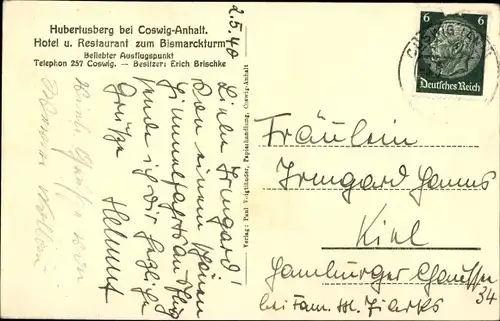 Hubertusberg bei Coswig-Anhalt.
Hotel u. Restaurant zum Bismarckturm
Beliebter Ausflugspunkt
Telephon 257 Coswig. — Besitzer: Erich Brischke
2.5.40
Liebe Irmgard!
Von einem schönen
Himmelfahrts-Ausflug
sende ich Dir herzliche
Grüße
Helmut
Viele Grüße von
Verlag: Paul Voigtländer, Papierhandlung, Coswig-Anhalt
6 6
Deutsches Reich
COSWIG
Fräulein
Irmgard
Kiel
Hamburger Chaussee
34
bei Fam.